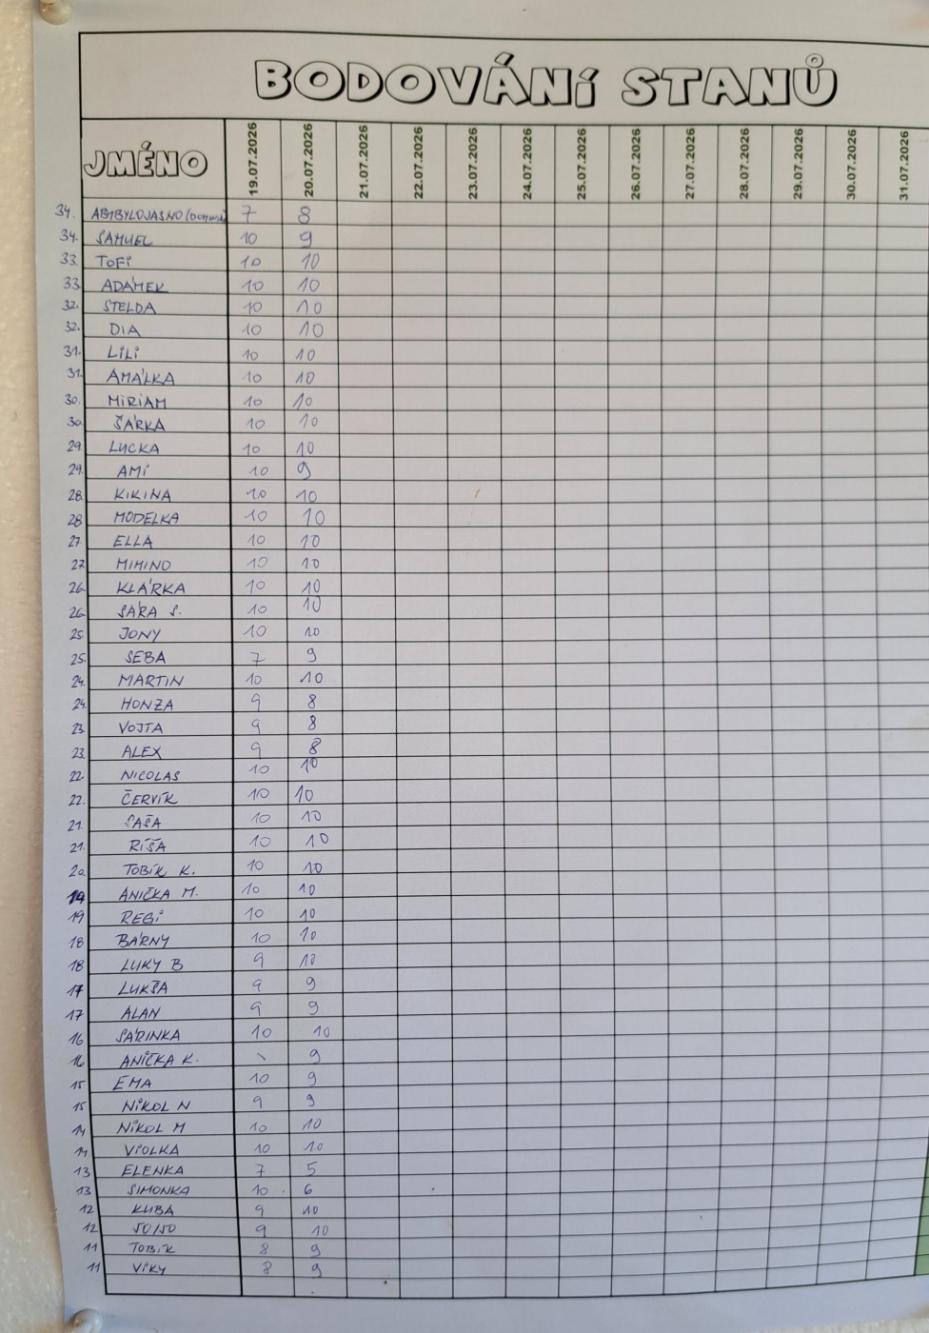 BODOVÁNÍ STANŮ
JMÉNO 19.07.2026 20.07.2026 21.07.2026 22.07.2026 23.07.2026 24.07.2026 25.07.2026 26.07.2026 27.07.2026 28.07.2026 29.07.2026 30.07.2026 31.07.2026
34. 7 8
34. SAMUEL 10 9
33. TOFI 10 10
33. ADÁMEK 10 10
32. STELDA 10 10
32. DIA 10 10
31. LILI 10 10
31. AMÁLKA 10 10
30. MIRIAM 10 10
30 ŠÁRKA 10 10
29. LUCKA 10 10
29. AMI 10 9
28. KIKINA 10 10
28 MODELKA 10 10
27 ELLA 10 10
27 MIMINO 10 10
26 KLÁRKA 10 10
26 SÁRA S. 10 10
25 JONY 10 10
25. SEBA 7 9
24. MARTIN 10 10
24. HONZA 9 8
23. VOJTA 9 8
23 ALEX 9 8
22 NICOLAS 10 10
22. ČERVÍK 10 10
21. SAŠA 10 10
21. RÍŠA 10 10
20 TOBÍK K. 10 10
19 ANIČKA M. 10 10
19 REGI 10 10
18 BÁRNY 10 10
18 LUKY B 9 10
17 LUKŠA 9 9
17 ALAN 9 9
16 SÁRINKA 10 10
16 ANIČKA K. \ 9
15 EMA 10 9
15 NIKOL N 9 9
14 NIKOL M 10 10
14 VIOLKA 10 10
13 ELENKA 7 5
13 SIMONKA 10 6
12 KUBA 9 10
12 JOJO 9 10
11 TOBIK 8 9
11 VIKY 8 9